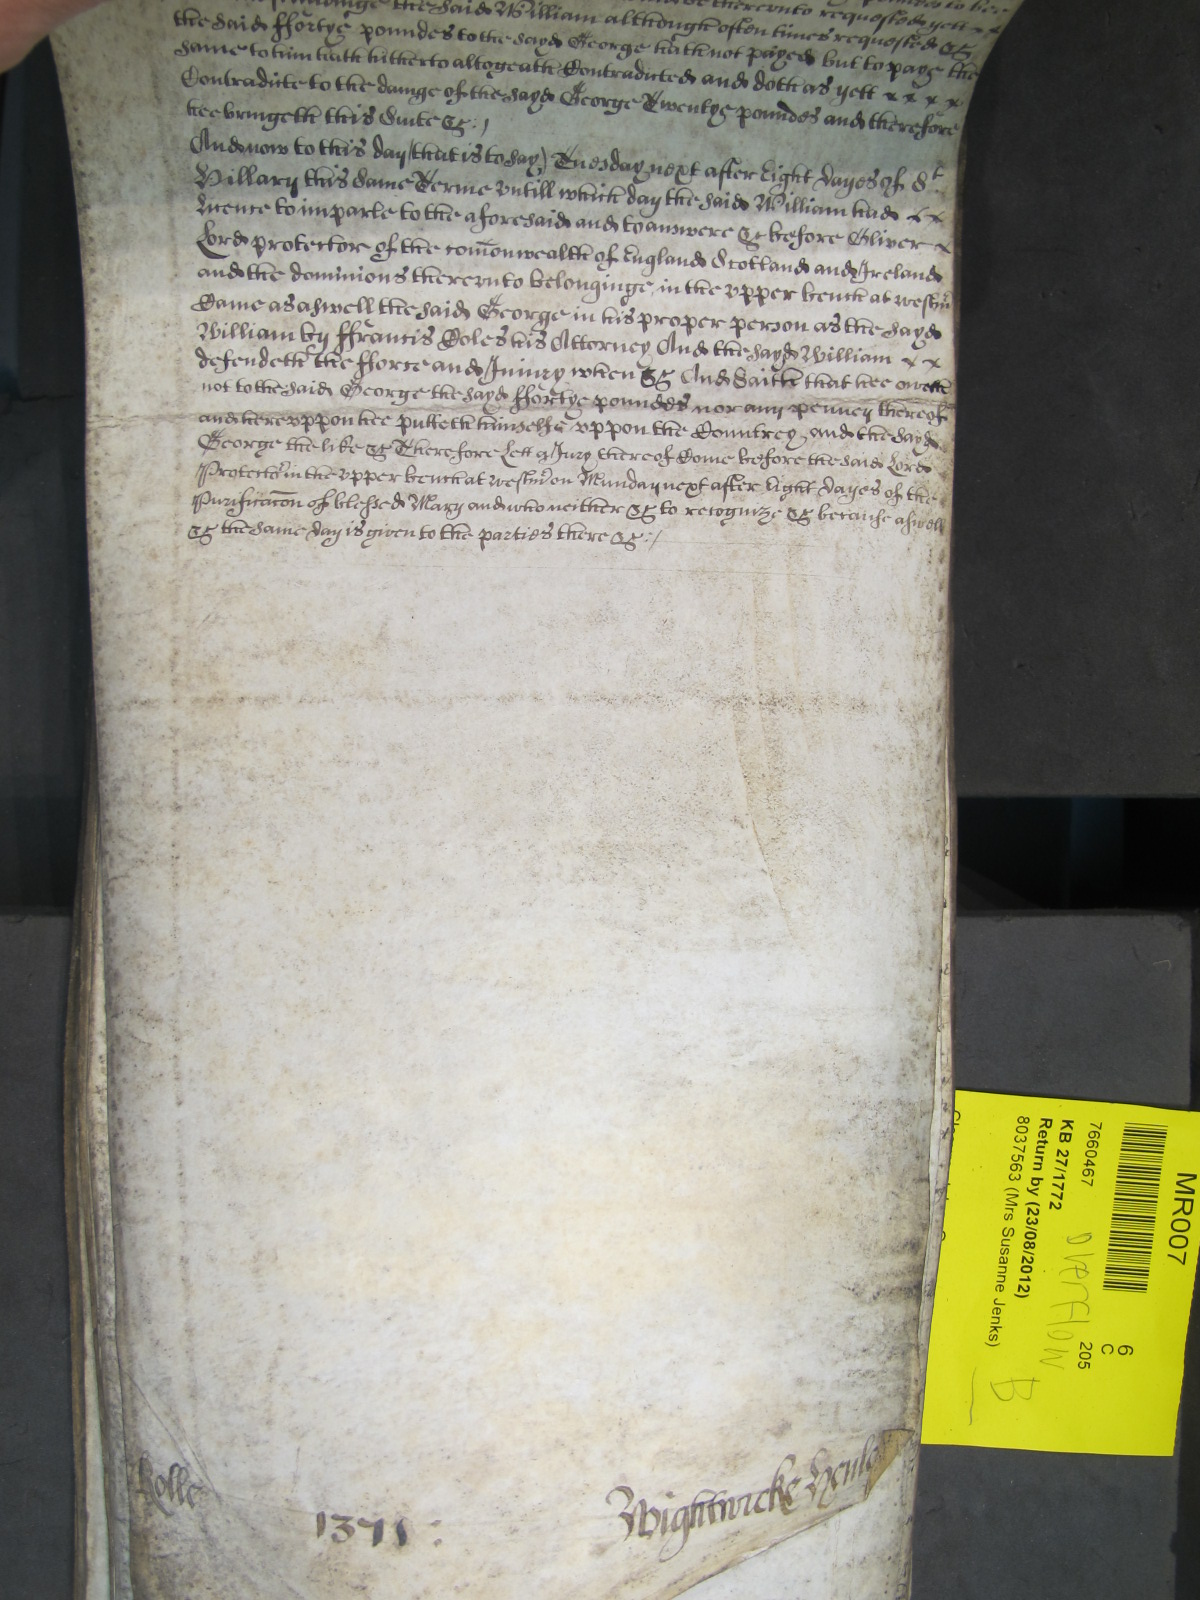 the said William although often times requested &c
the said fforty poundes to the sayd George hath not payed but to paye the
same to him hath hitherto altogeath Contradicted and doth as yett x x x x
Contradicte to the damge of the sayd George Twentye poundes and therefore
hee bringeth this Suite &c :/
And now to this day (that is to say) Tuesday next after Eight dayes of St
Hillary this same Terme untill which day the said William had x x
licence to imparle to the aforesaid and to answere &c before Oliver x
Lord protector of the comonwealth of England Scotland and Ireland
and the dominions thereunto belonginge in the upper bench at westm̃
Came as aswell the said George in his proper person as the sayd
William by ffrancis Coles his Attorney And the sayd William x x
defendeth the fforce and Iniury when &c And Saith that hee oweth
not to the said George the sayd ffortye poundes nor any penney thereof
and hereuppon hee putteth himselfe uppon the Countrey, and the sayd
George the like &c Therefore Lett a Jury thereof Come before the said Lord
Protector in the upper bench at westmr on Munday next after Eight dayes of the
Purificacon of blessed Mary and who neither &c to recognize &c because aswell
&c the same day is given to the parties there &c :/
Rolle
1371 :
Wightwicke
MR007
6
C
205
7660467
KB 27/1772
Return by (23/08/2012)
8037563 (Mrs Susanne Jenks)
OVERFLOW
B